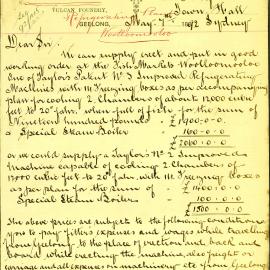 VULCAN FOUNDRY,
GEELONG,
Refrigerating
Woolloomooloo
Town Hall
May 7th 1892 Sydney
Dear Sir
We can supply erect and put in good
working order at the Fish Markets Woolloomooloo
One of Taylor's Patent No 3 Improved Refrigerating
Machines with 111 Freezing boxes as per accompanying
plan for cooling 2 Chambers of about 12000 cubic
feet to 20° fahr. when full of fish for the sum of
Nineteen hundred pounds £1900.0.0
a Special Steam Boiler 160.0.0
£2060.0.0
or we could supply a Taylor's No 2 Improved
Machine capable of cooling 2 Chambers of
12000 cubic feet to 20° fahr. with 111 Freezing boxes
as per plan for the sum of £1400.0.0
Special Steam Boiler 100.0.0
£1500.0.0
The above prices are subject to the following conditions
you to pay fitters expenses and wages while travelling
from Geelong to the place of erection and back and
board while erecting the machine, also freight or
carriage and all expenses on machinery etc from Geelong